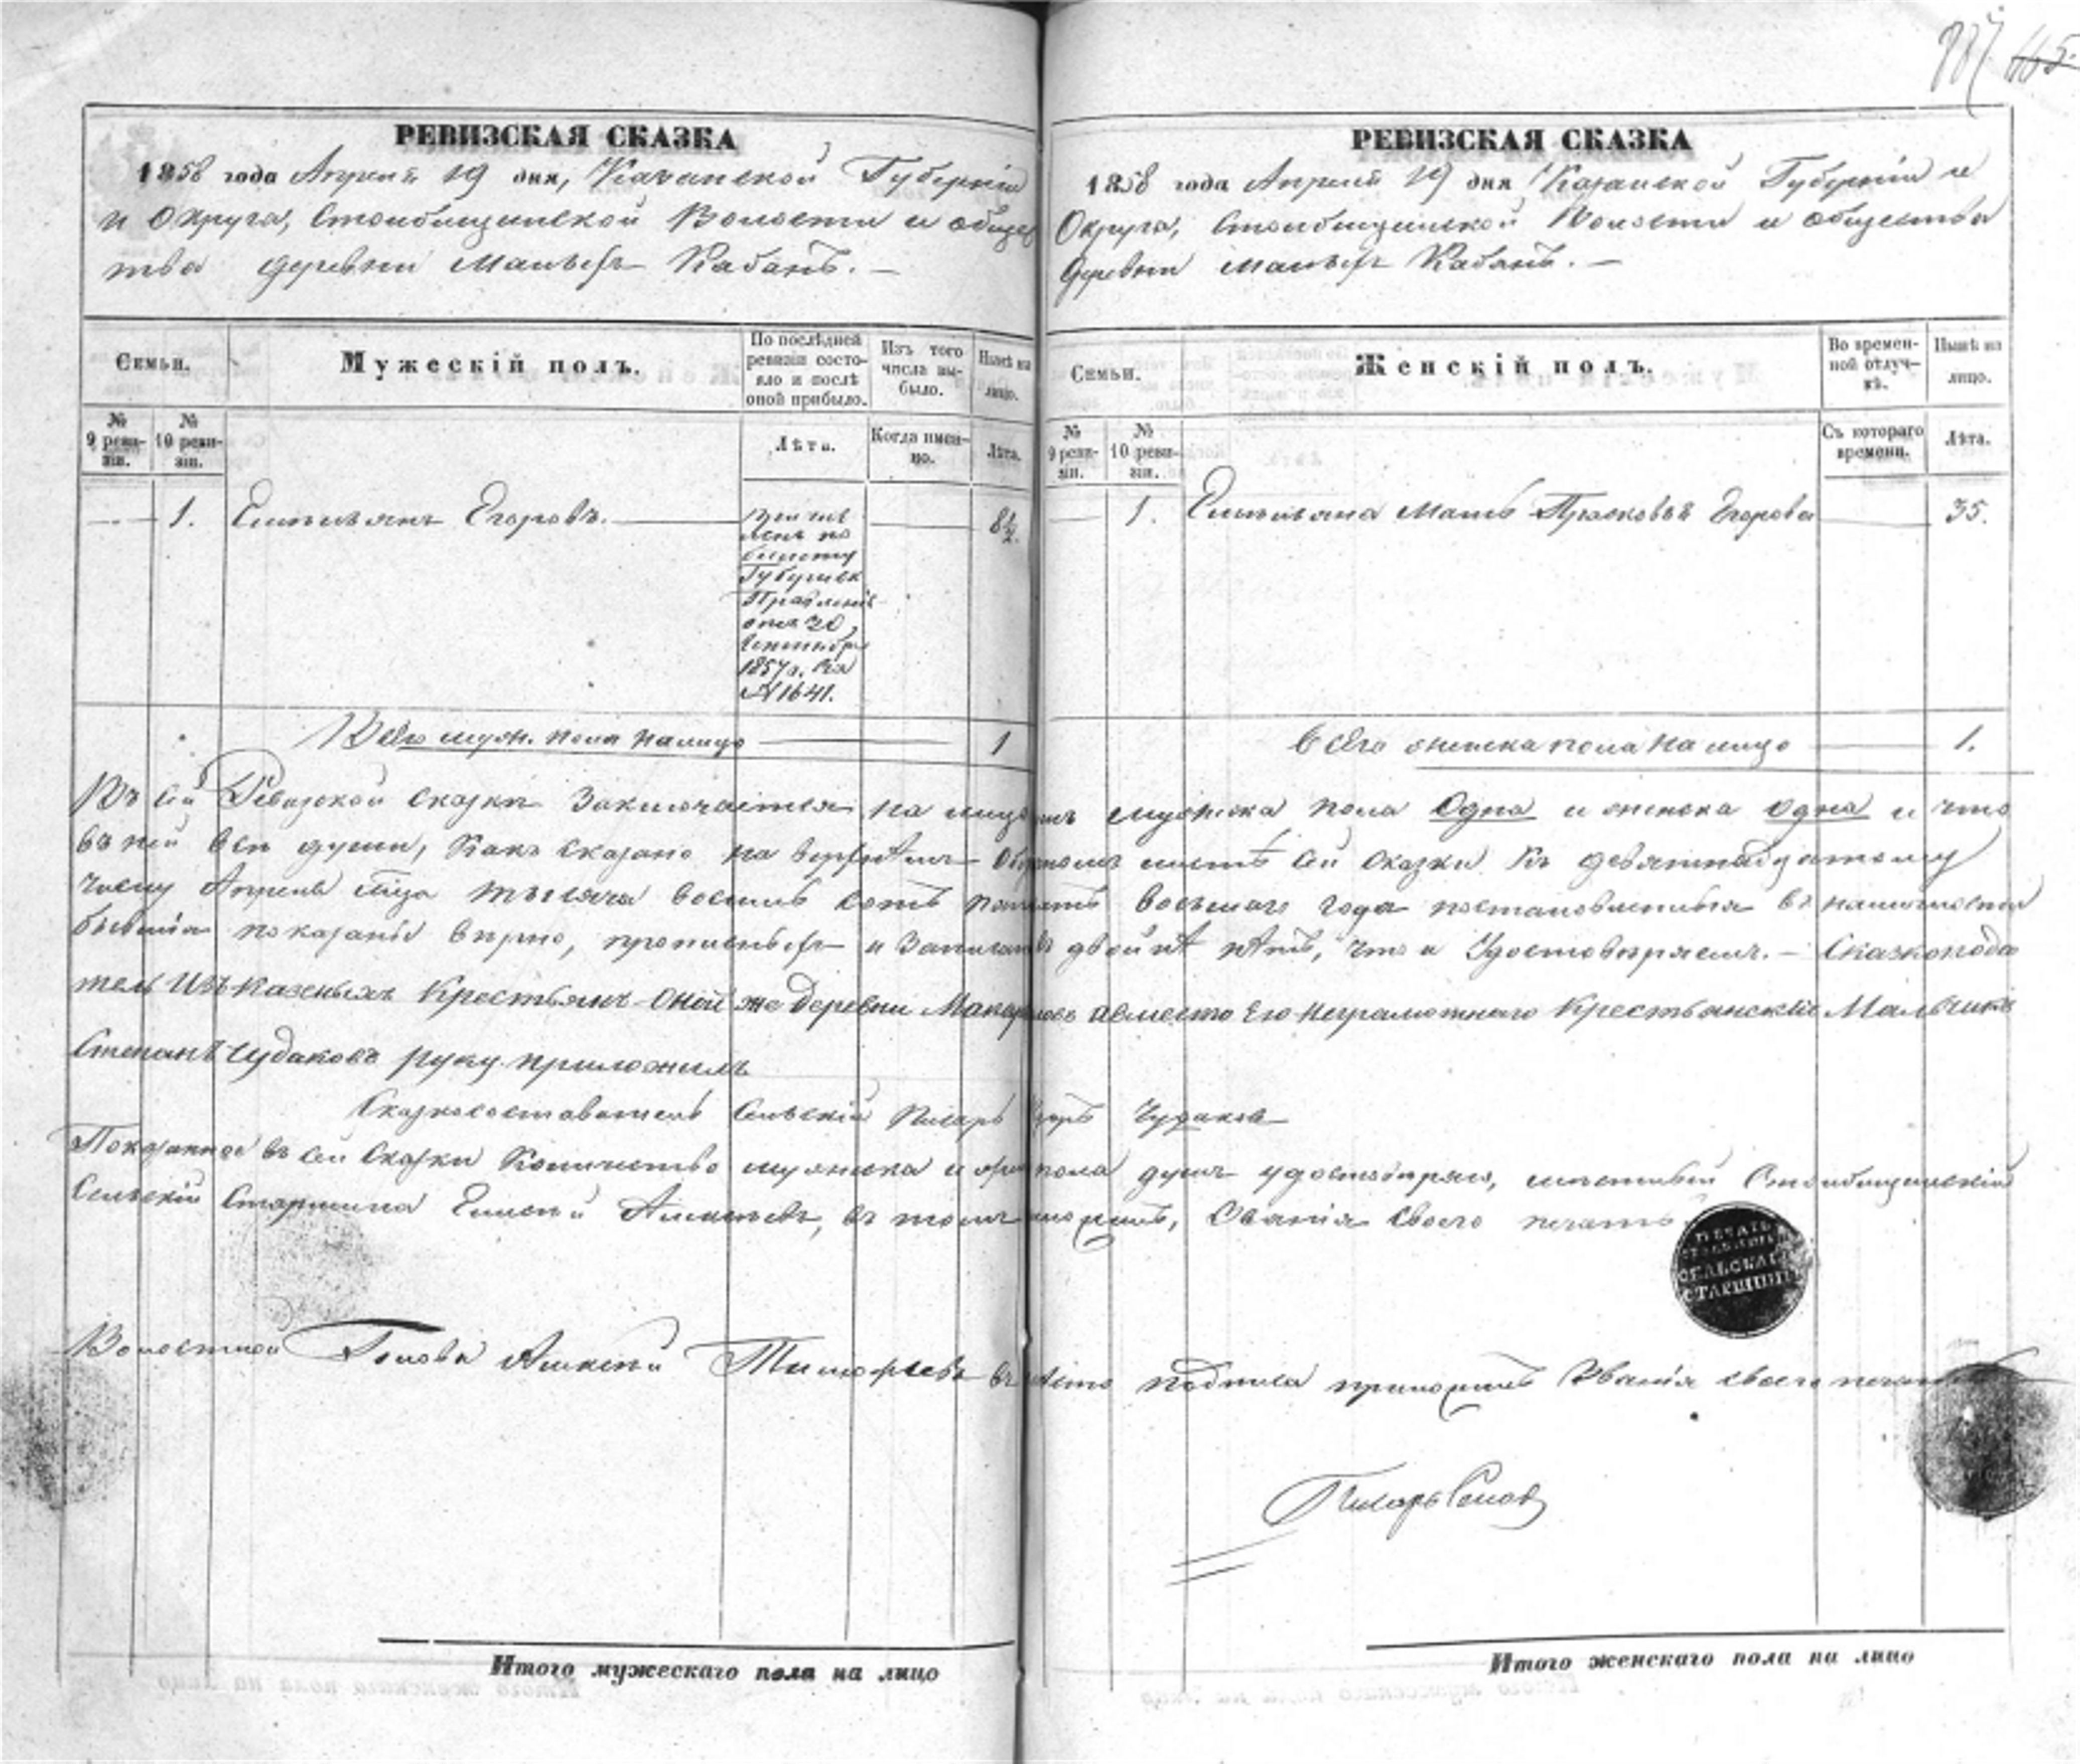 445.
РЕВИЗСКАЯ СКАЗКА
1858 года Апреля 19 дня, Казанской Губерніи
и Округа, Столбищинской Волости и общес
тва деревни Малыхъ Кабанъ. —
Семьи.
Мужескій полъ.
По послѣдней ревизіи состояло и послѣ оной прибыло.
Изъ того числа выбыло.
Нынѣ на лицо.
№ 9 ревизіи.
№ 10 ревизіи.
Лѣта.
Когда именно.
Лѣта.
1.
Емельянъ Егоровъ.
Причис
ленъ по
билету
Губернск
Правленія
отъ 20
Сентября
1857 г. за
№ 1641.
8½.
Всего муж. пола налицо
1
РЕВИЗСКАЯ СКАЗКА
1858 года Апреля 19 дня Казанской Губерніи и
Округа, Столбищинской Волости и общества
Деревни Малыхъ Кабанъ. —
Семьи.
Женскій полъ.
Во временной отлучкѣ.
Нынѣ на лицо.
№ 9 ревизіи.
№ 10 ревизіи.
Съ котораго времени.
Лѣта.
1.
Емельяна Мать Прасковья Егорова
35.
Всего женска пола на лицо
1.
Въ сей Ревизской сказкѣ Заключается на лицо мужска пола Одна и женска одна и что
въ ней всѣ души, Какъ сказано на сей сказки Къ девятнадцатому
числу Апреля м̃ца тысяча восемь сотъ пятьдесятъ восьмаго года въ наличности
бывшія показаны вѣрно, и двойнѣ нѣтъ, что и Удостовѣряемъ. — Сказкопода
тель Изъ казеныхъ Крестьянъ Оной же Деревни авместо Его Неграмотнаго Крестьянскій Мальчикъ
Степанъ Чудаковъ руку приложилъ
Сказкосоставитель Сельскій Писарь Чудаковъ
Показанное въ сей Сказки Количество мужска и жен пола душъ удостовѣряю, Столбищинскій
Сельскій Старшина Алексѣевъ, въ томъ Званія своего печать
ПЕЧАТЬ
СЕЛЬСКАГО
СТАРШИНЫ
Волостной Голова Алексѣй Тимофѣевъ вмѣсто подписа Званія своего печать
Писарь
Итого мужескаго пола на лицо
Итого женскаго пола на лицо